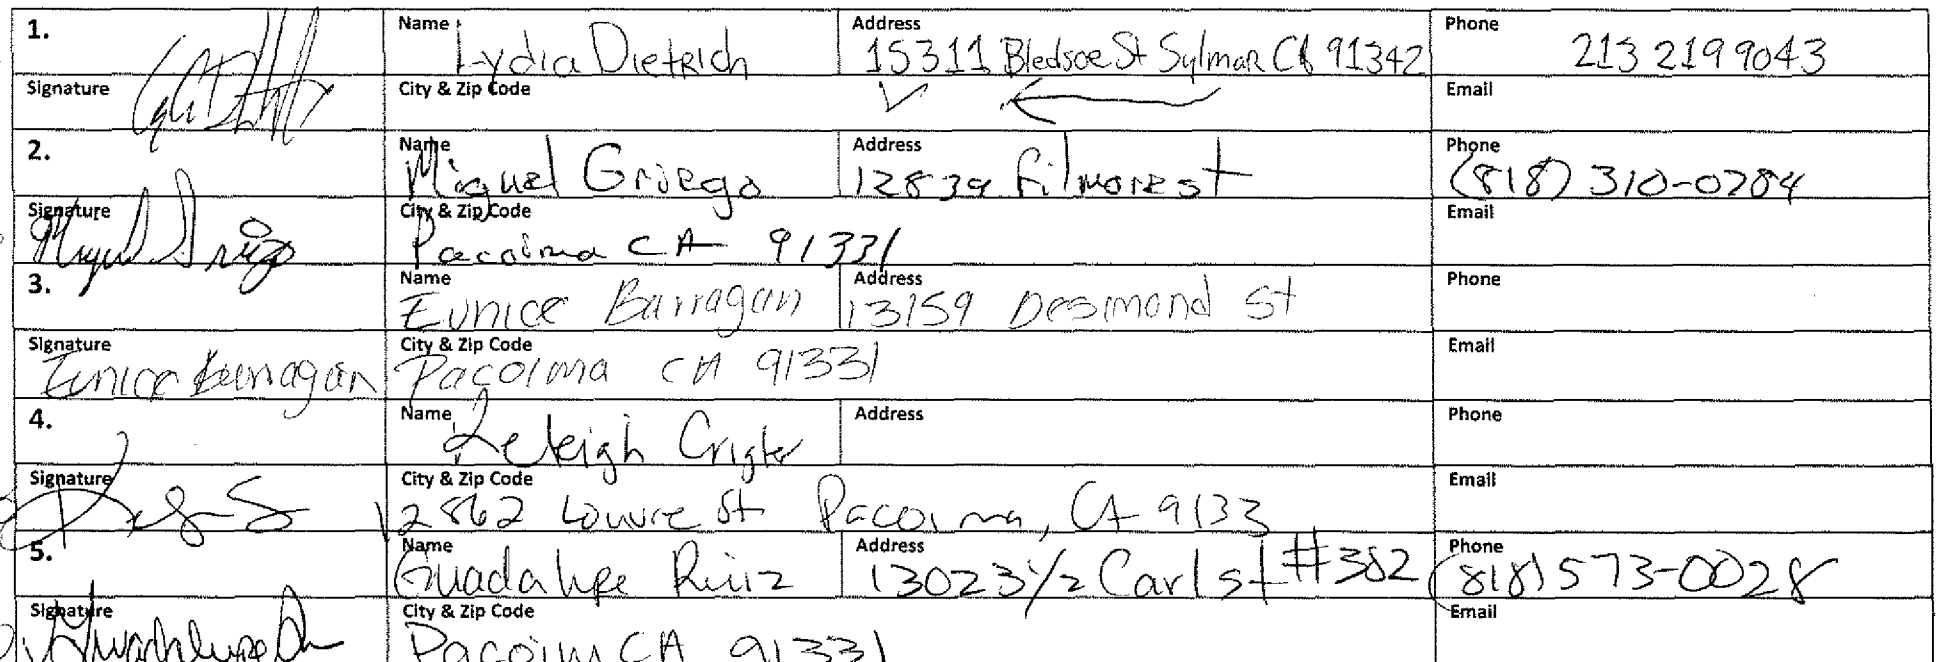 1. Name Lydia Dietrich Address 15311 Bledsoe St Sylmar CA 91342 Phone 213 219 9043
Signature City & Zip Code Email
2. Name Miguel Griego Address 12839 Filmore st Phone (818) 310-0784
Signature Miguel Griego City & Zip Code Pacoima CA 91331 Email
3. Name Eunice Barragan Address 13159 Desmond St Phone
Signature Eunice Barragan City & Zip Code Pacoima CA 91331 Email
4. Name Keleigh Crigler Address Phone
Signature City & Zip Code 12862 Louvre St Pacoima, CA 9133 Email
5. Name Guadalupe Ruiz Address 13023 1/2 Carl st #382 Phone (818) 573-0028
Signature City & Zip Code Pacoim CA 91331 Email